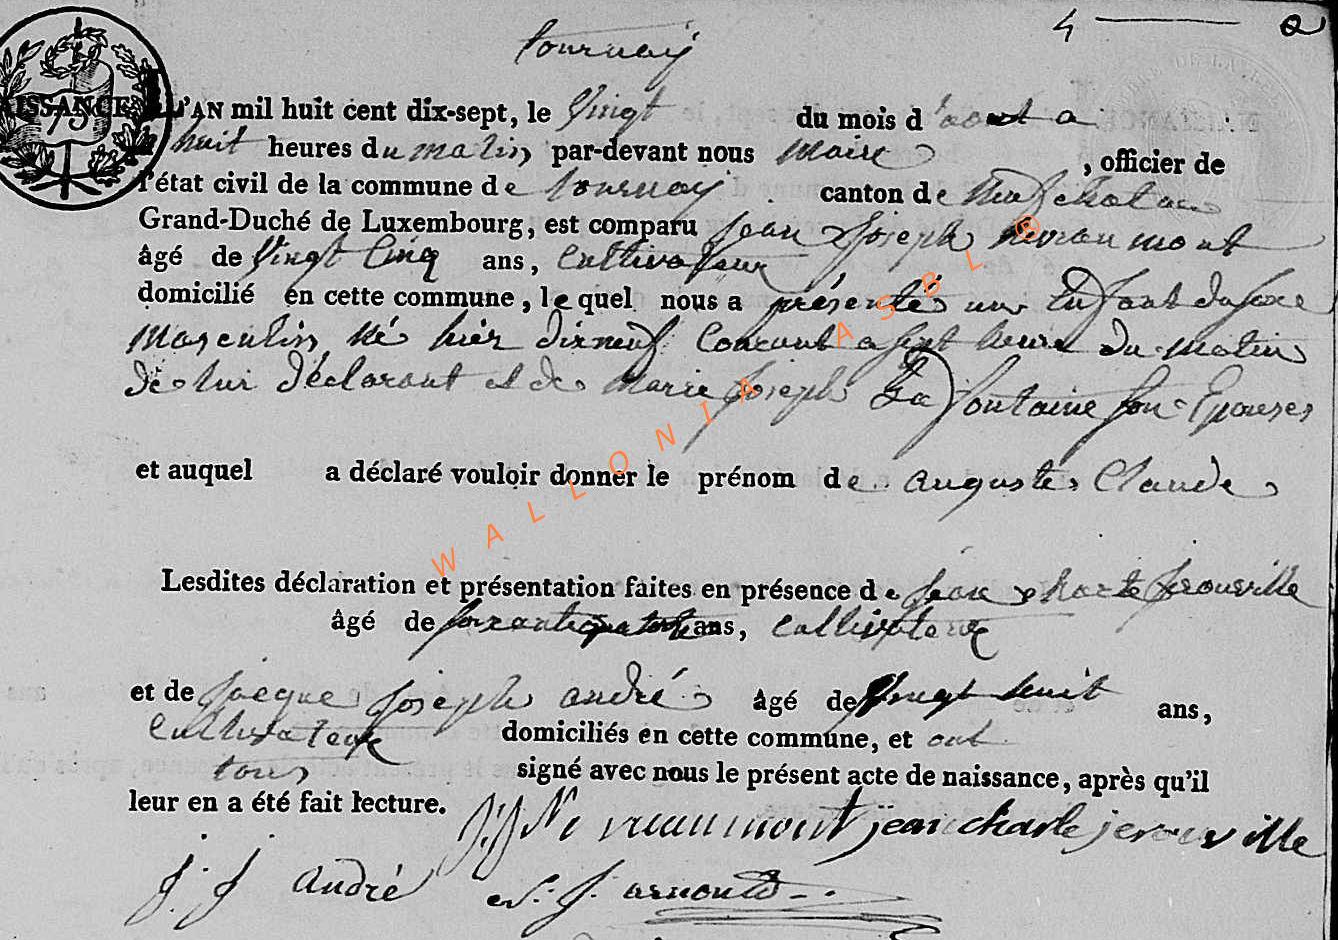 4 — 2
tournay
NAISSANCE. L'AN mil huit cent dix-sept, le Vingt du mois d'aout a
huit heures du matin par-devant nous maire , officier de
l'état civil de la commune de tournay canton de Neufchateau
Grand-Duché de Luxembourg, est comparu Jean Joseph Nevraumont
âgé de Vingt Cinq ans, Cultivateur
domicilié en cette commune, le quel nous a présenté un Enfant du sexe
Masculin, Né hier dixneuf Courant a sept heure du matin
de lui déclarant et de marie Joseph La fontaine son Epouses
et auquel a déclaré vouloir donner le prénom de auguste Claude
Lesdites déclaration et présentation faites en présence de Jean Charle Jerouville
âgé de soixante quatre ans, Cultivateur
et de Jacque Joseph andré âgé de vingt huit ans,
Cultivateur domiciliés en cette commune, et ont
tous signé avec nous le présent acte de naissance, après qu'il
leur en a été fait lecture. J:J Nevraumont jean charle jerouville
J. J andré J. arnould
WALLONIA ASBL ®